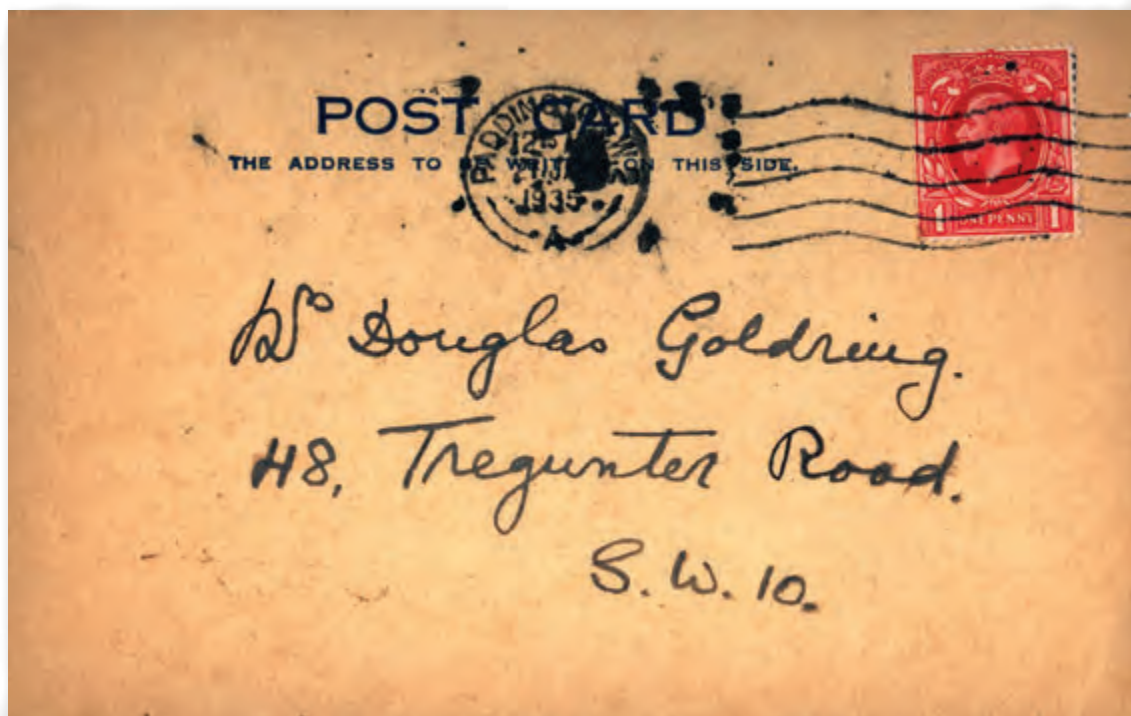 POST CARD
THE ADDRESS TO BE WRITTEN ON THIS SIDE.
PADDINGTON
1935
A
1 ONE PENNY 1
Douglas Goldring.
48, Tregunter Road.
S.W. 10.